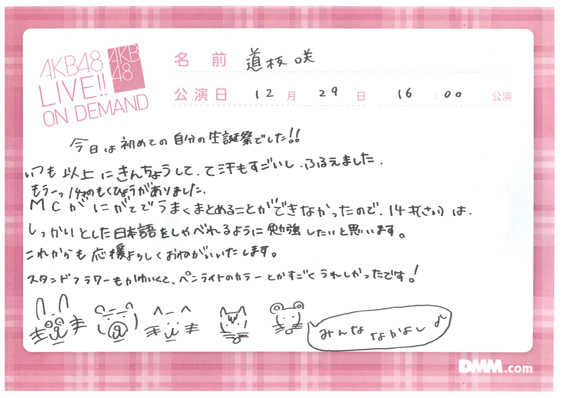 AKB48
LIVE!!
ON DEMAND
AKB
48
名前 道枝咲
公演日 12月 29日 16:00 公演
今日は初めての自分の生誕祭でした!!
いつも以上にきんちょうして、て汗もすごいし、ふるえました。
もう一つ14才のもくひょうがありました。
MCがにがてでうまくまとめることができなかったので、14才(さい)は、
しっかいとした日本語をしゃべれるように勉強したいと思います。
これからも応援よろしくおねがいいたします。
スタンドフラワーもかわいくて、ペンライトのカラーとかすごくうれしかったです!
みんななかよし♪
DMM.com